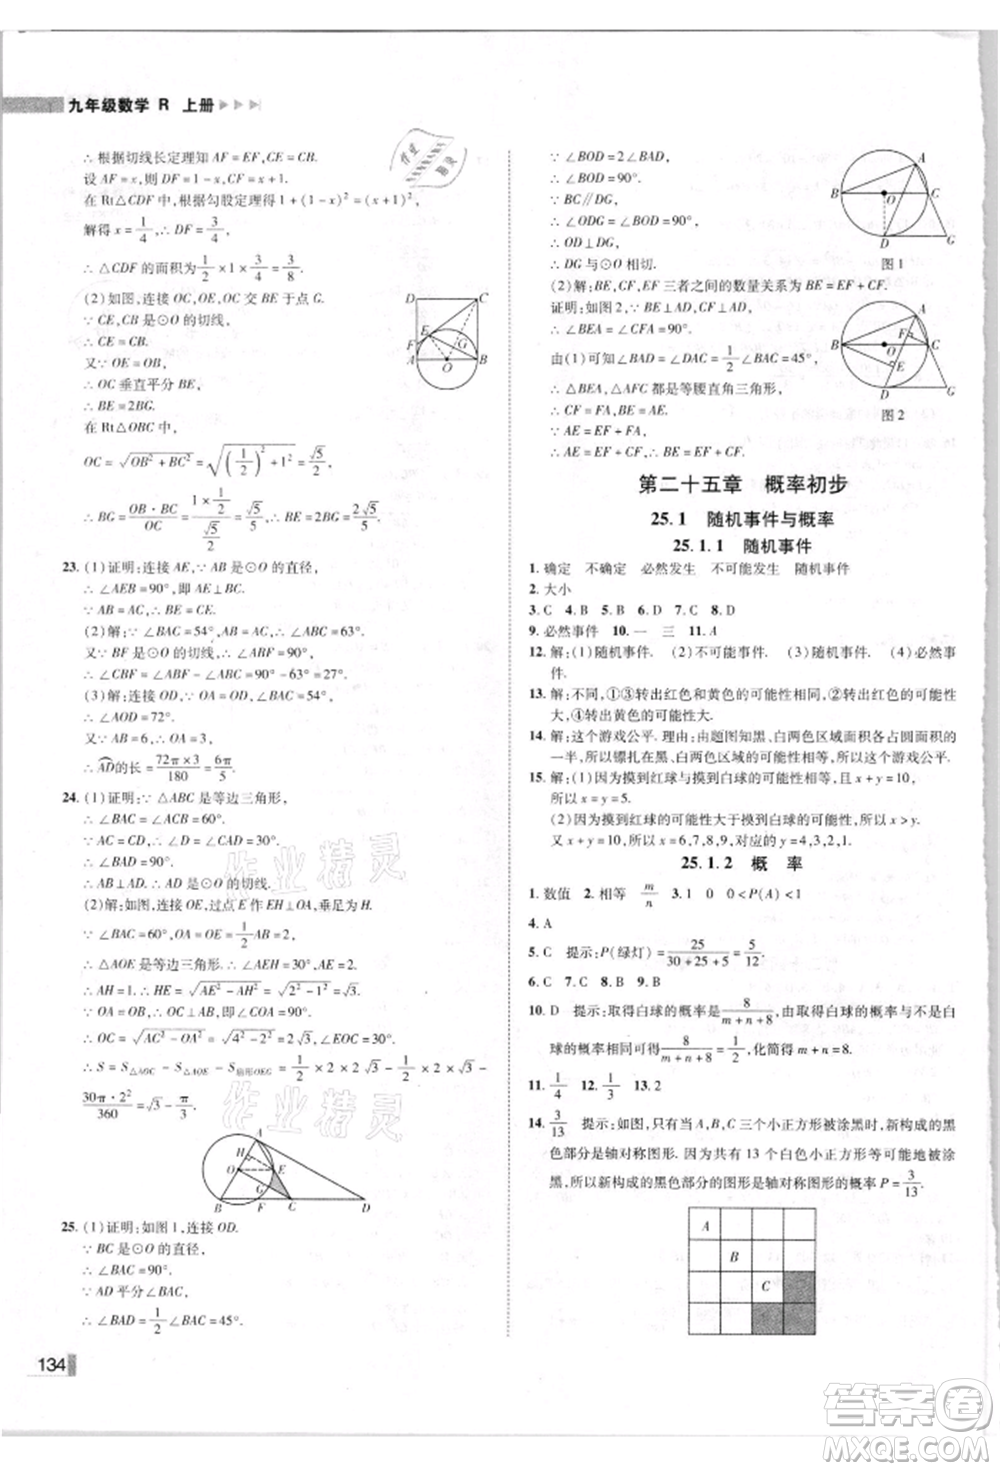 九年级数学 R 上册
∴根据切线长定理知 AF=EF,CE=CB.
设 AF=x,则 DF=1-x,CF=x+1.
在 Rt△CDF 中,根据勾股定理得 1+(1-x)²=(x+1)²,
解得 x=1/4,∴DF=3/4,
∴△CDF 的面积为 1/2×1×3/4=3/8.
(2)如图,连接 OC,OE,BE 交于点 G.
∵CE,CB 是⊙O 的切线,
∴CE=CB.
又∵OE=OB,
∴OC 垂直平分 BE,
∴BE=2BG.
在 Rt△OBC 中,
OC=√(OB²+BC²)=√((1/2)²+1²)=√5/2,
∴BG=OB·BC/OC=(1×1/2)/(√5/2)=√5/5,∴BE=2BG=2√5/5.
D C E F G A O B
23. (1)证明:连接 AE,∵AB 是⊙O 的直径,
∴∠AEB=90°,即 AE⊥BC.
∵AB=AC,∴BE=CE.
(2)解:∵∠BAC=54°,AB=AC,∴∠ABC=63°.
又∵BF 是⊙O 的切线,∴∠ABF=90°,
∴∠CBF=∠ABF-∠ABC=90°-63°=27°.
(3)解:连接 OD,∵OA=OD,∠BAC=54°,
∴∠AOD=72°.
又∵AB=12,∴OA=6,
∴AD的长=72π×6/180=12π/5
24. (1)证明:∵△ABC 是等边三角形,
∴∠BAC=∠ACB=60°.
∵AC=CD,∴∠CAD=∠CDA=30°,
∴∠BAD=90°.
∴AB⊥AD,∴AD 是⊙O 的切线.
(2)解:如图,连接 OE,过点 E 作 EH⊥OA,垂足为 H.
∵∠BAC=60°,OA=OE=1/2AB=2,
∴△AOE 是等边三角形,∴∠AEH=30°,
∴AH=1.∴HE=√(AE²-AH²)=√(2²-1²)=√3.
∵OA=OB,∴OC⊥AB,即∠COA=90°,
∴OC=√(AC²-OA²)=√(4²-2²)=2√3,∠EOC=30°,
∴S=S△AOC-S△AOE-S扇形OEG=1/2×2×2√3-1/2×2×√3-
30π·2²/360=√3-π/3.
A H O E G B F C D
25. (1)证明:如图 1,连接 OD.
∵BC 是⊙O 的直径,
∴∠BAC=90°.
∵AD 平分∠BAC,
∴∠BAD=1/2∠BAC=45°.
134
∵∠BOD=2∠BAD,
∴∠BOD=90°.
∵BC∥DG,
∴∠ODG=∠BOD=90°,
∴OD⊥DG.
∴DG 与⊙O 相切.
A B O C D G
图 1
(2)解:BE,CF,EF 三者之间的数量关系为 BE=CF+EF.
证明:如图 2,∵BE⊥AD,CF⊥AD,
∴∠BEA=∠CFA=90°.
由(1)可知∠BAE=∠CAD=1/2∠BAC=45°,
∴△BEA,△AFC 都是等腰直角三角形,
∴CF=FA,BE=AE.
∵AE=EF+FA,
∴BE=EF+CF.
A F B O C E D G
图 2
第二十五章 概率初步
25.1 随机事件与概率
25.1.1 随机事件
1. 确定 不确定 必然发生 不可能发生 随机事件
2. 大小
3. C 4. B 5. B 6. D 7. C 8. D
9. 必然事件 10. 一 三 11. A
12. 解:(1)随机事件. (2)不可能事件. (3)随机事件. (4)必然事
件.
13. 解:不同,①③转出红色和黄色的可能性相同,②转出红色的可能性
大,④转出黄色的可能性大.
14. 解:这个游戏公平.由题图知黑、白两色区域面积各占圆面积的
一半,所以镖扎在黑、白两色区域的可能性一样大,这个游戏公平.
15. 解:(1)因为摸到红球与摸到白球的可能性相等,且 x+y=10,
所以 x=y=5.
(2)因为摸到红球的可能性大于摸到白球的可能性,所以 x>y.
又 x+y=10,所以 x=6,7,8,9,对应的 y=4,3,2,1.
25.1.2 概 率
1. 数值 2. 相等 m/n 3. 1 0 0<P(A)<1
4. A
5. C 提示:P(绿灯)=25/(30+25+5)=5/12.
6. C 7. C 8. B 9. B
10. D 提示:取得白球的概率是 8/(m+n+8),由取得白球与不是白
球的概率相同可得 8/(m+n+8)=1/2,化简得 m+n=8.
11. 1/4 12. 1/3 13. 2
14. 3/13 提示:如图,只有 A,B,C 三个小正方形被涂黑,新构成的黑
色部分是轴对称图形.因为共有 13 个白色小正方形可涂黑,所
以所以新构成的黑色部分的图形是轴对称图形的概率 P=3/13.
A
B
C
作业精灵
作业精灵
答案圈
MXQE.COM